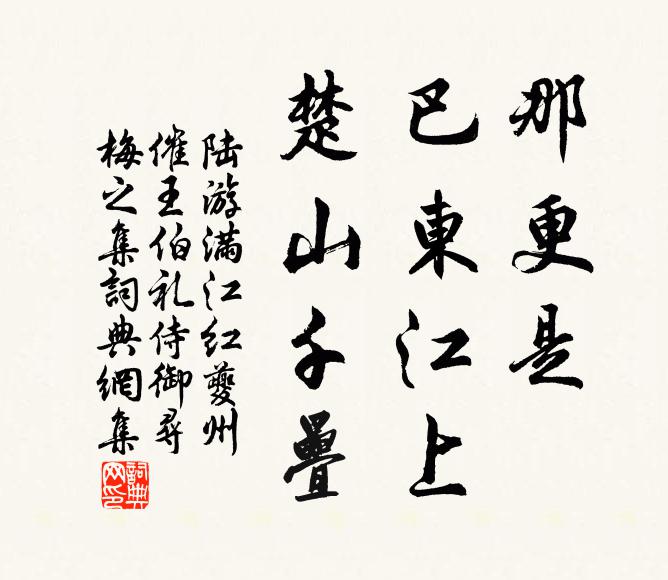 那更是
巴東江上
楚山千疊
陆游满江红夔州
催王伯礼侍御寻
梅之集詞典網集
詞典
网印